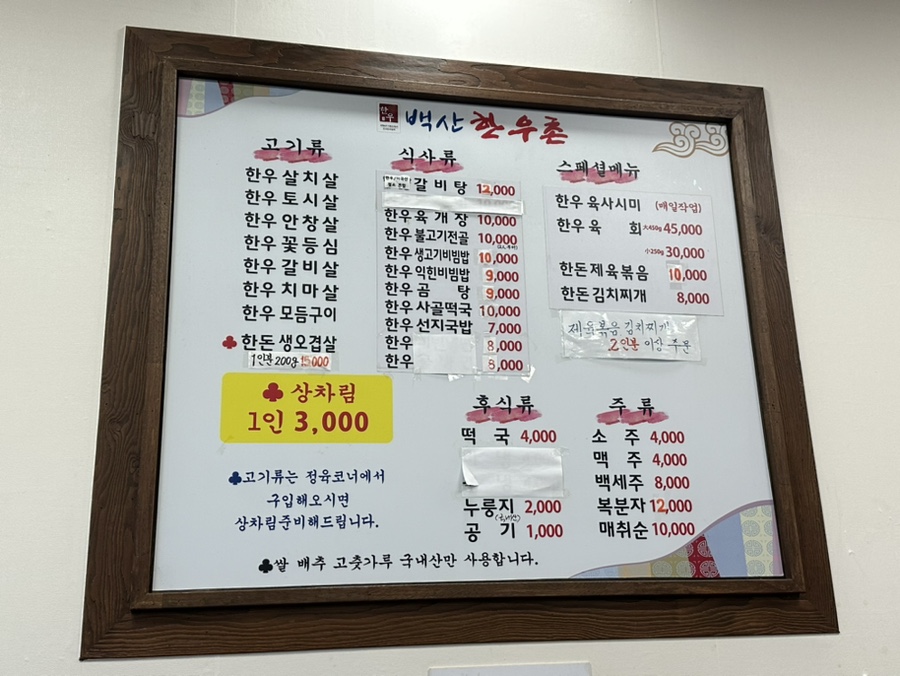 한우
백산 한우촌
고기류
한우 살치살
한우 토시살
한우 안창살
한우 꽃등심
한우 갈비살
한우 치마살
한우 모듬구이
♣한돈 생오겹살
1인분 200g 15,000
♣ 상차림
1인 3,000
♣고기류는 정육코너에서
구입해오시면
상차림준비해드립니다.
식사류
갈비탕 12,000
한우 육개장 10,000
한우 불고기전골 10,000
한우 생고기비빔밥 10,000
한우 익힌비빔밥 9,000
한우 곰탕 9,000
한우 사골떡국 10,000
한우 선지국밥 7,000
한우 8,000
한우 8,000
스페셜메뉴
한우 육사시미 (매일작업)
한우 육회 大450g 45,000
小250g 30,000
한돈제육볶음 10,000
한돈김치찌개 8,000
제육볶음 김치찌개
2인분 이상 주문
후식류
떡국 4,000
누룽지 2,000
공기 1,000
주류
소주 4,000
맥주 4,000
백세주 8,000
복분자 12,000
매취순 10,000
♣쌀 배추 고춧가루 국내산만 사용합니다.